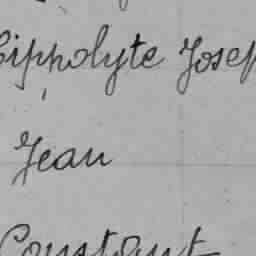 Hippolyte Joseph
Jean
Constant